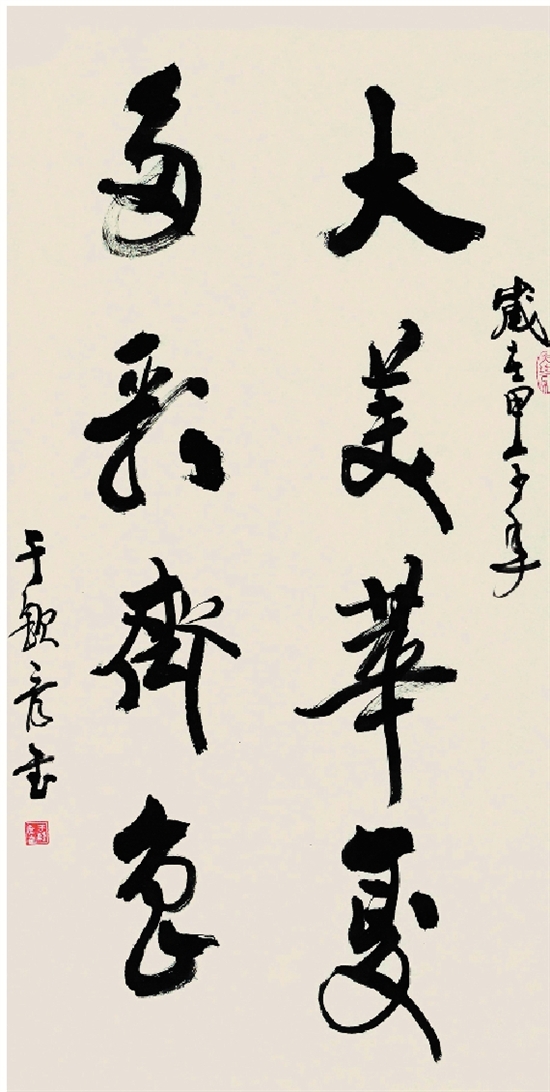 歲在甲午年
大美華夏
多彩齊魯
于欽彦書